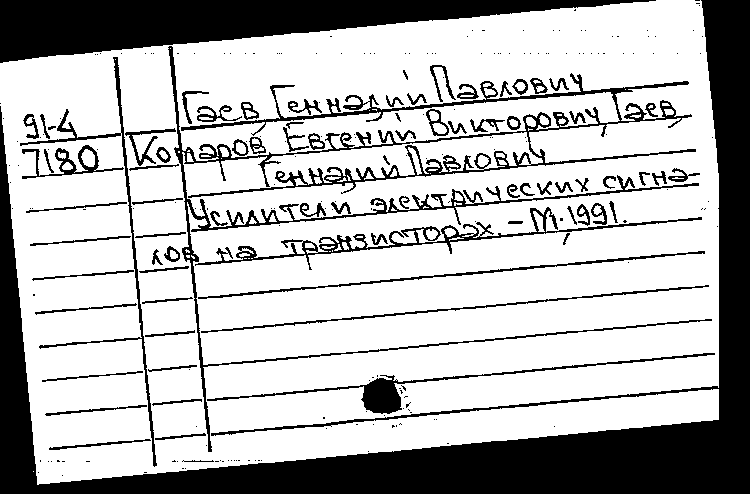 91-4 Гаев Геннадий Павлович
7180 Комаров, Евгений Викторович, Гаев,
Геннадий Павлович
Усилители электрических сигна-
лов на транзисторах. - М., 1991.